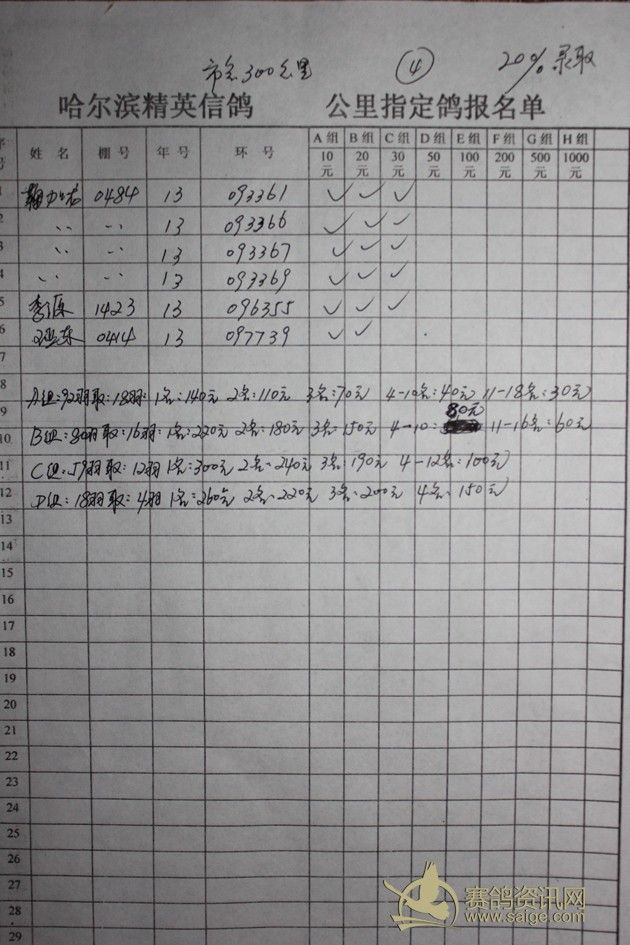 市会300公里 ④ 20% 录取
哈尔滨精英信鸽 公里指定鸽报名单
序号 姓名 棚号 年号 环号 A组 10元 B组 20元 C组 30元 D组 50元 E组 100元 F组 200元 G组 500元 H组 1000元
1 0484 13 093361 ✓ ✓ ✓
2 〃 〃 13 093366 ✓ ✓ ✓
3 〃 〃 13 093367 ✓ ✓ ✓
4 〃 〃 13 093369 ✓ ✓ ✓
5 1423 13 096355 ✓ ✓ ✓
6 0414 13 097739 ✓ ✓
7
8 A组:92羽取:18羽:1名:140元 2名:110元 3名:70元 4-10名:40元 11-18名:30元
9 80元
10 B组:80羽取:16羽:1名:220元 2名:180元 3名:150元 4-10: 11-16名:60元
11 C组:59羽取:12羽 1名:300元 2名:240元 3名:190元 4-12名:100元
12 D组:18羽取:4羽 1名:260元 2名:220元 3名:200元 4名:150元
13
14
15
16
17
18
19
20
21
22
23
24
25
26
27
28
29
赛鸽资讯网
www.saige.com